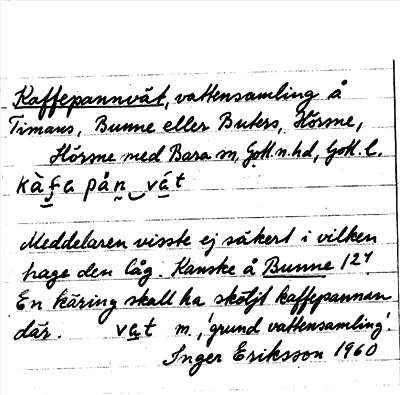 Kaffepannvät, vattensamling å
Timans, Bunne eller Buters, Hörsne,
Hörsne med Bara sn, Gotl. n. hd, Gotl. l.
kàfapån‿vát
Meddelaren visste ej säkert i vilken
hage den låg. Kanske å Bunne 1²⁷
En käring skall ha sköljt kaffepannan
där. vat m. 'grund vattensamling'.
Inger Eriksson 1960